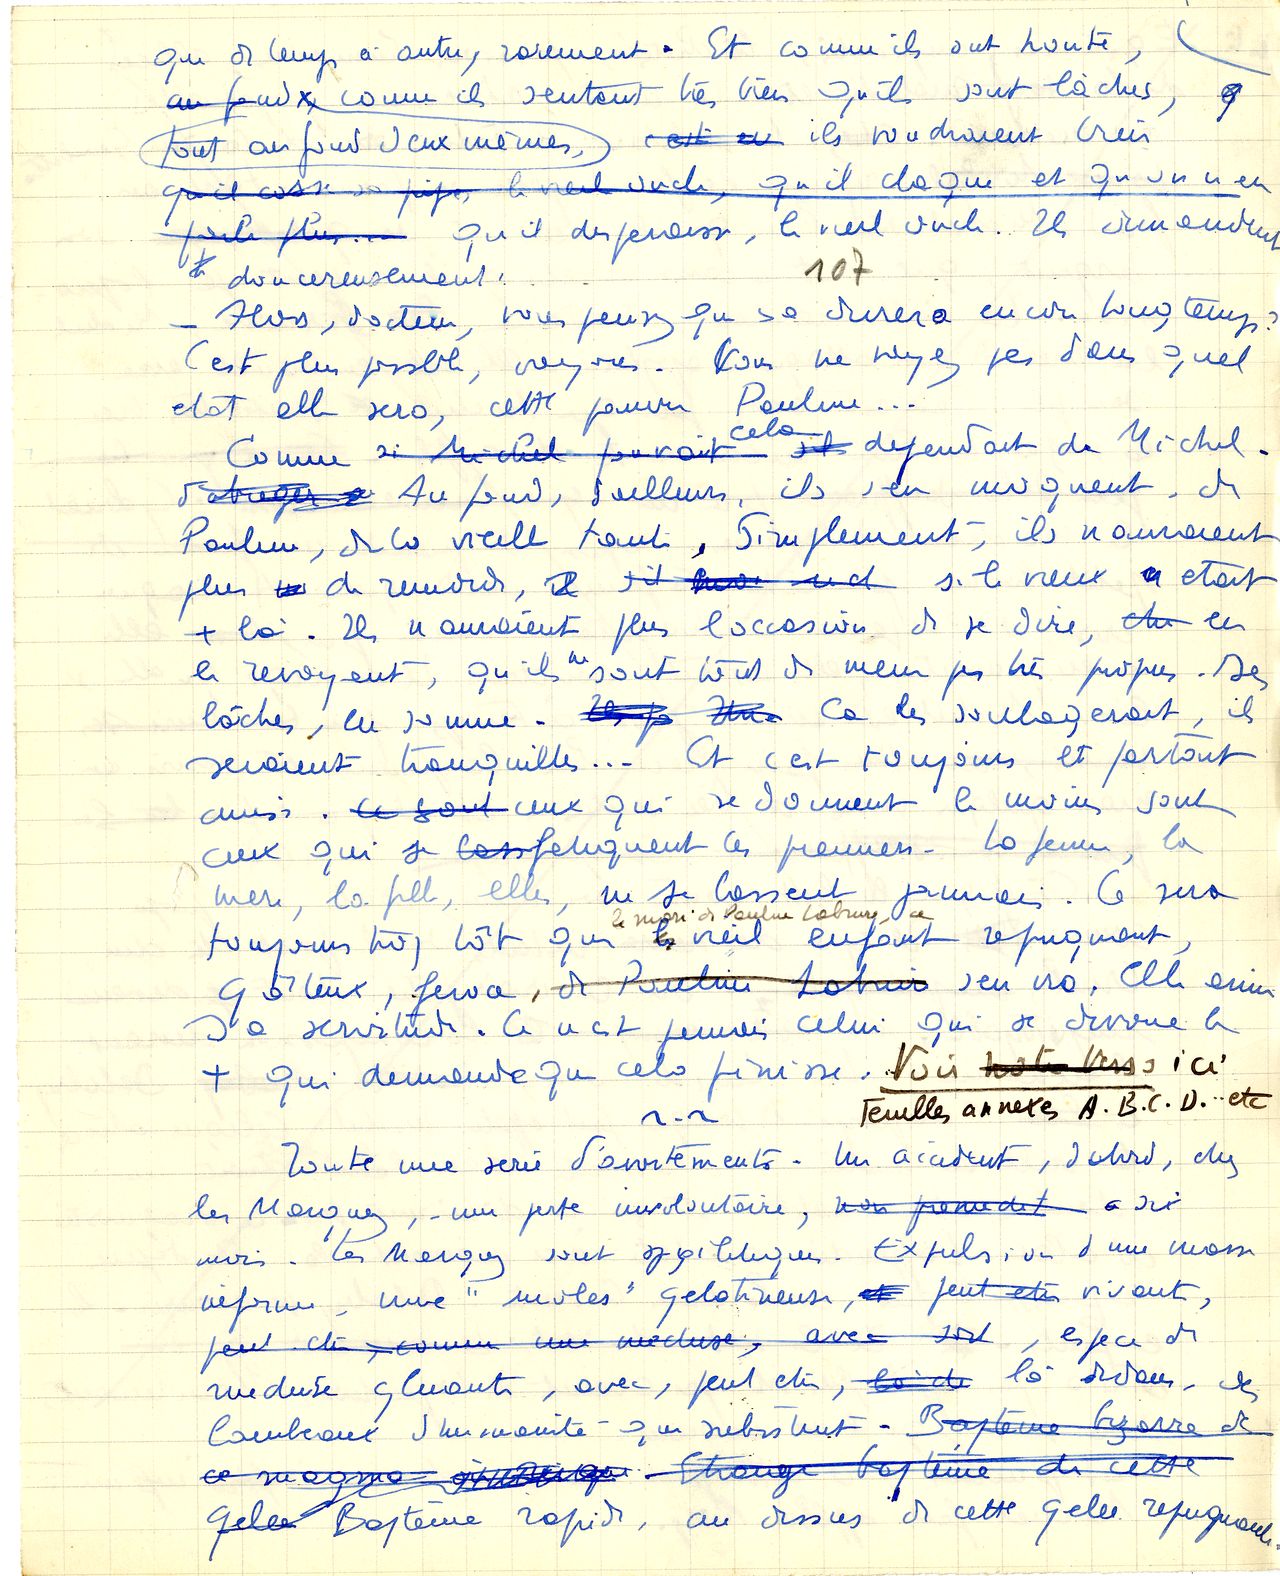 que de temps à autre, rarement. Et comme ils ont honte,
au fond, comme ils sentent très bien qu'ils sont lâches,
tout au fond d'eux mêmes, ils voudraient bien
qu'il casse sa pipe, le vieil oncle, qu'il claque et qu'on n'en
parle plus... qu'il disparaisse, le vieil oncle. Ils demandent
doucereusement :
107
– Alors, docteur, vous pensez que ça durera encore longtemps?
C'est plus possible, voyons. Vous ne voyez pas dans quel
état elle sera, cette pauvre Pauline...
cela
Comme si Michel pouvait dependait de Michel.
Au fond, d'ailleurs, ils s'en moquent, de
Pauline, de la vieille tante, Simplement, ils n'auraient
plus de remords, si le vieux n'etait
+ là. Ils n'auraient plus l'occasion de se dire, en
le revoyant, qu'ils ne sont tout de meme pas très propres. Des
lâches, en somme. Ca les soulagerait, ils
seraient tranquilles... Et c'est toujours et partout
ainsi. Ce sont ceux qui se donnent le moins sont
ceux qui se lass fatiguent les premiers. La femme, la
mere, la fille, elles, ne se lassent jamais. Ce sera
le mari de Pauline Labrure, ce
toujours trop tôt que vieil enfant repugnant,
gâteux, feroce, de Pauline s'en ira. Elle aime
sa servitude. Ce n'est jamais celui qui se devoue le
+ qui demande que cela finisse. Voir notre verso ici
Feuilles annexes A. B. C. D... etc
Toute une serie d'avortements. Un accident, d'abord, chez
les Manquez, – une perte involontaire, a six
mois. Les Manquez sont syphilitiques. Expulsion d'une masse
informe, une "moles" gelatineuse, peut etre vivante,
peut etre, comme une meduse, avec, espece de
meduse gluante, avec, peut etre, là dedans, des
lambeaux d'humanité qui subsistent. Baptême bizarre de
ce magma Etrange baptême de cette
gelee Baptême rapide, au dessus de cette gelee repugnante.